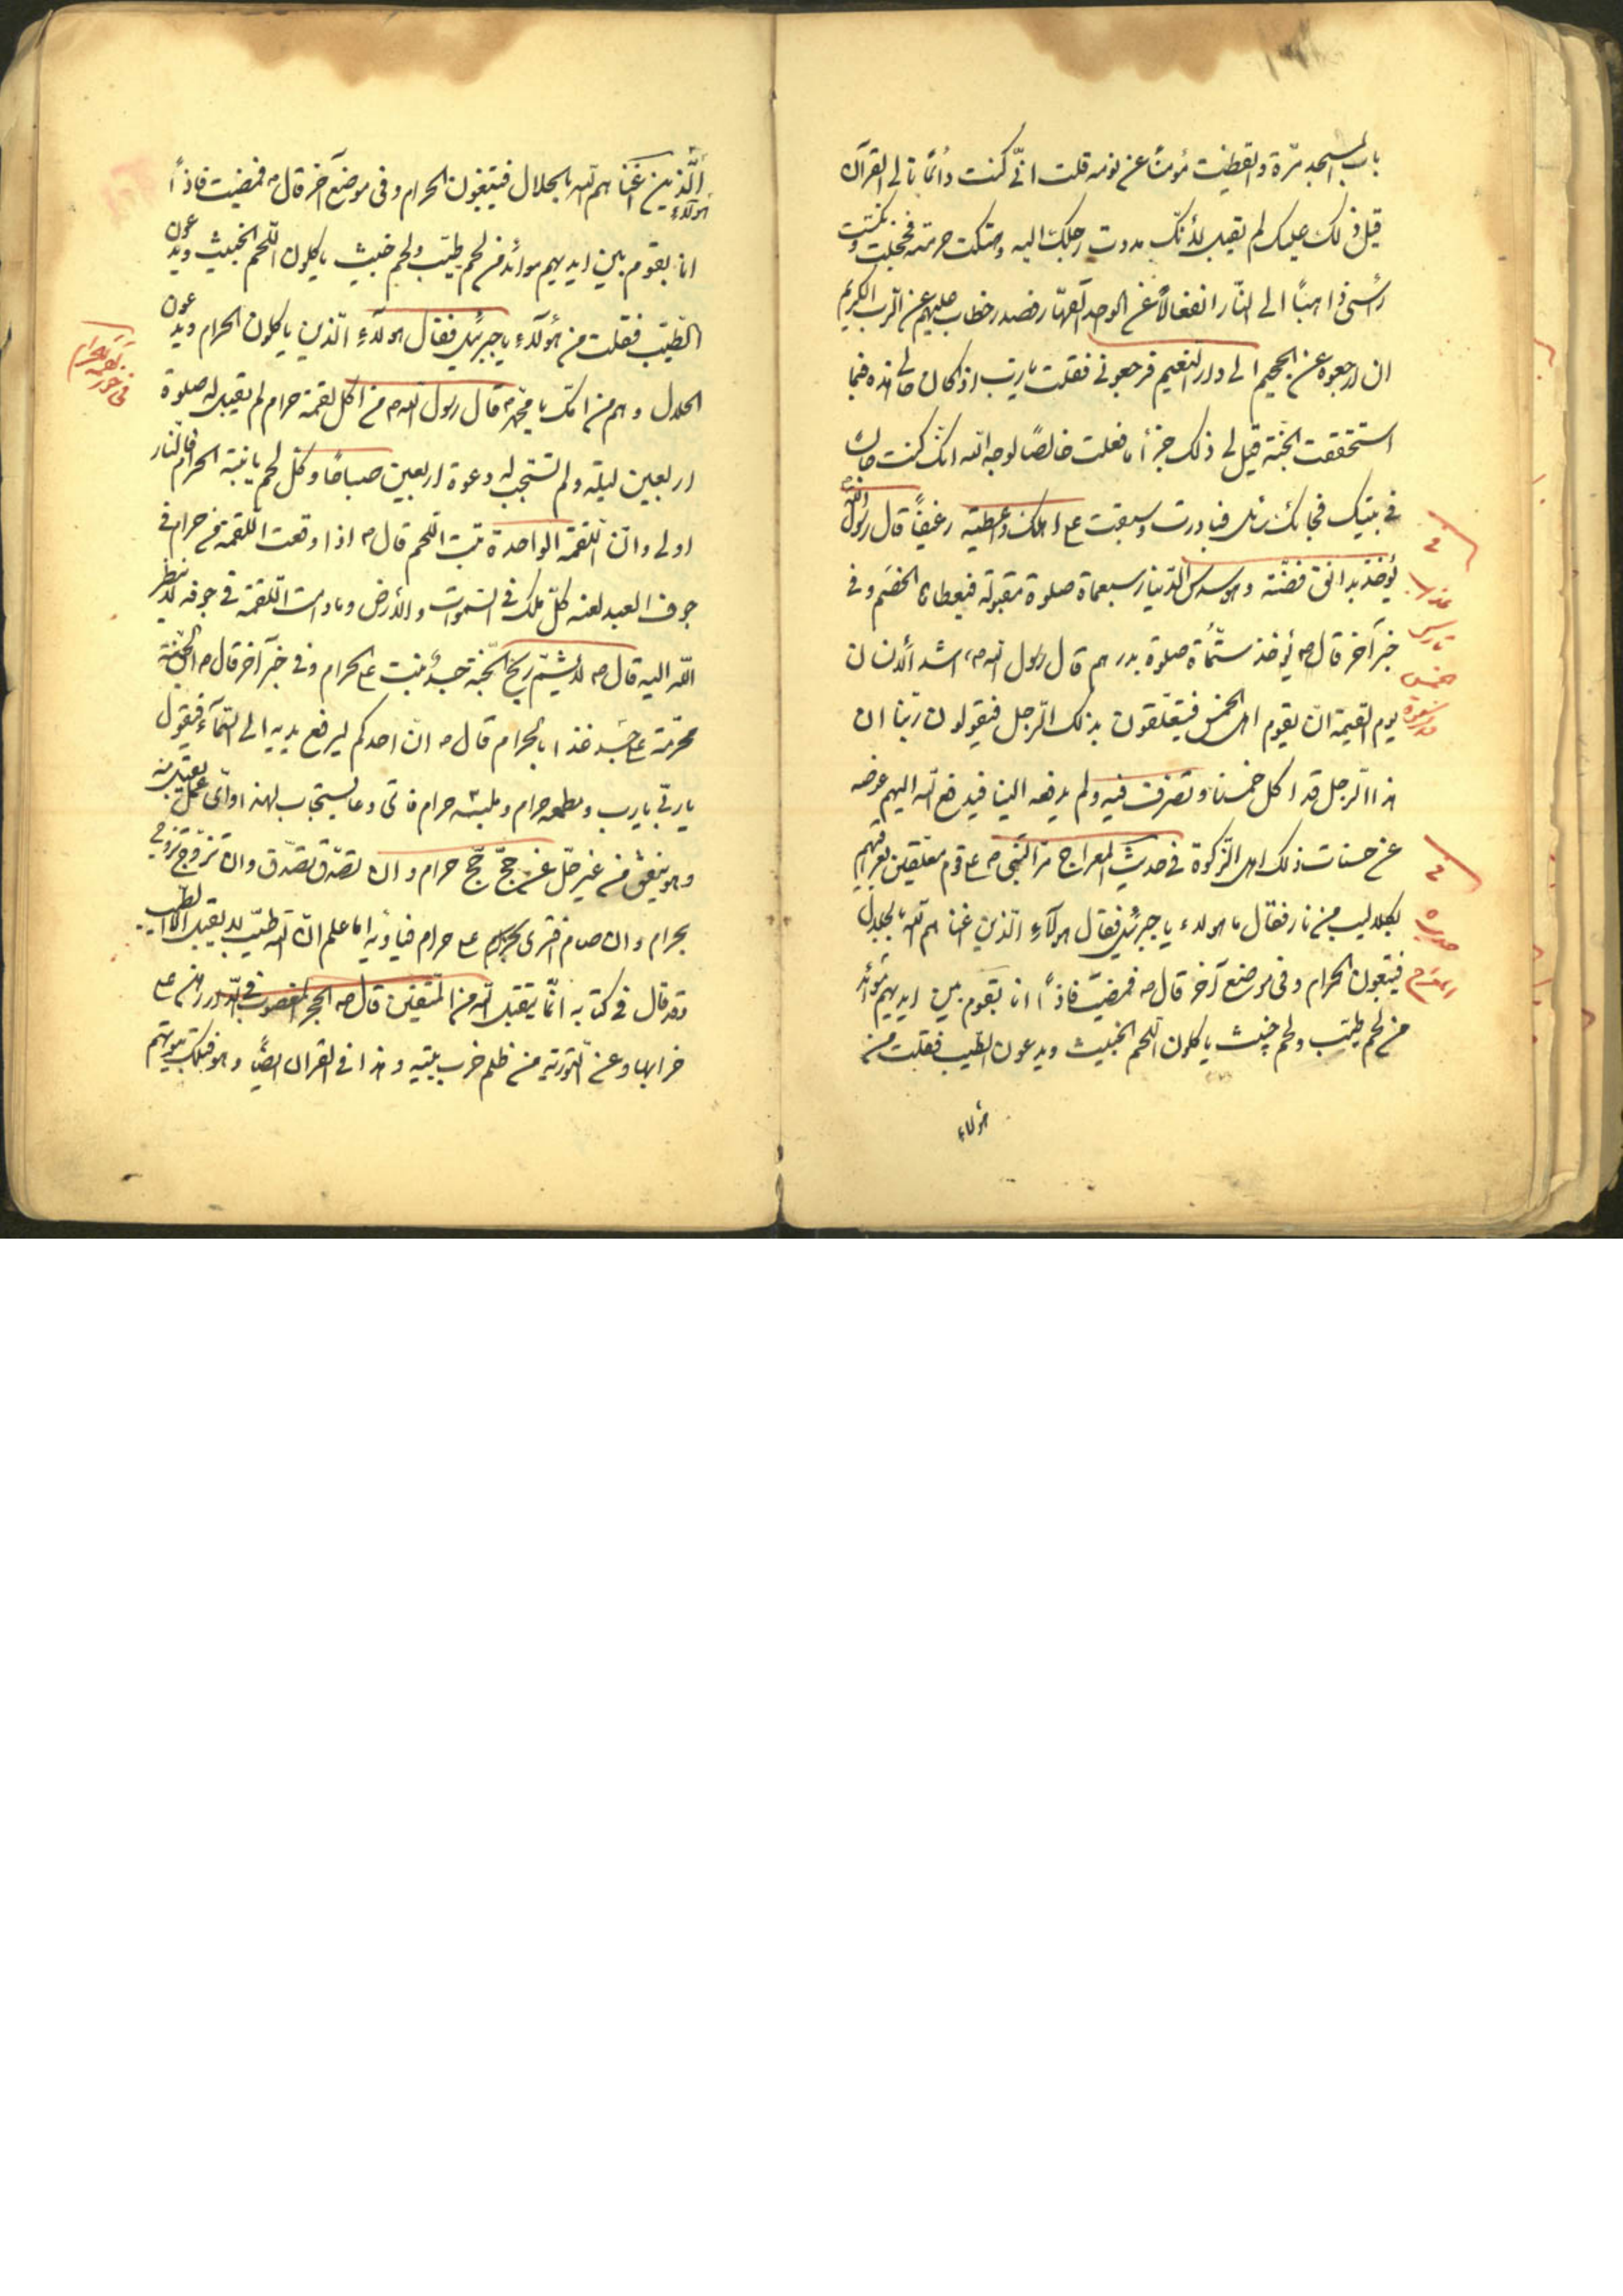 باب المسجد مرّة والقطيت مؤمنًا عن نومه قلت انّى كنت دائمًا تالى القرآن
قيل ذلك عليك لم يقبل لأنّك مددت رجلك اليه وهتكت حرمته فخجلت ونكست
رأسى ذاهبًا الى النّار انفعالاً عن الواحد القهّار فصدر خطاب عن الرب الكريم
ان ارجعوه عن الجحيم الى دار النعيم فرجعونى فقلت يا ربّ اذ كان حالى هذه فبما
استحققت الجنّة قيل لى ذلك جزأ ما فعلت خالصًا لوجه الله انّك كنت
فى بيتك فجائك سائل فبادرت وسبقت على اهلك واعطيته رغيفًا قال رسول الله
يؤخذ بدانق فضّة وهو سدس الدّينار سبعمأة صلوة مقبولة فيعطاها الخصم وفى
خبر آخر قال ص يؤخذ ستّمأة صلوة بدرهم قال رسول الله ص اشد الانسان
يوم القيمة ان يقوم اهل الخمس فيتعلّقون بذلك الرّجل فيقولون ربّنا ان
هذا الرّجل قد اكل خمسنا وتصرّف فيه ولم يدفعه الينا فيدفع الله اليهم عوضه
عن حسنات ذلك اهل الزّكوة فى حديث المعراج مرّ النّبى ص على قوم معلّقين بعراقيبهم
بكلاليب من نار فقال ما هولاء يا جبرئيل فقال هولآء الّذين اغناهم الله بالحلال
فيتبعون الحرام وفى موضع آخر قال ص فمضيت فاذًا انا بقوم بين ايديهم موائد
من لحم طيّب ولحم خبيث ياكلون اللّحم الخبيث ويدعون الطيّب فقلت من
هؤلاء
عذاب
تارك
الخمس
حديث
هؤلاء
الّذين اغناهم الله بالحلال فيتبغون الحرام وفى موضع آخر قال ص فمضيت فاذًا
انا بقوم بين ايديهم موائد من لحم طيّب ولحم خبيث ياكلون اللّحم الخبيث ويدعون
الطّيّب فقلت من هؤلآء يا جبرئيل فقال هولآء الّذين ياكلون الحرام ويدعون
الحلال وهم من امّتك يا محمّد ص قال رسول الله ص من اكل لقمة حرام لم يقبل له صلوة
اربعين ليلة ولم تستجب له دعوة اربعين صباحًا وكلّ لحم ينبته الحرام فالنّار
اولى وانّ اللّقمة الواحدة تنبت اللّحم قال ص اذا وقعت اللّقمة من حرام فى
جوف العبد لعنه كلّ ملك فى السّموات والأرض ومادامت اللّقمة فى جوفه لا ينظر
اللّه اليه قال ص لا يشمّ ريح الجنّة جسد نبت على الحرام وفى خبر آخر قال ص الجنّة
محرّمة على جسد غذا بالحرام قال ص انّ احدكم ليرفع يديه الى السّمآء فيقول
يا ربّ يا رب ومطعمه حرام وملبسه حرام فاىّ دعا يستجاب لهذا واىّ عمل يقبل منه
وهو ينفق من غير حلّ ان حجّ حجّ حرام وان تصدّق تصدّق وان تزوّج تزوج
بحرام وان صام افترى على حرام فيا ويه اما علم انّ الله طيّب لا يقبل الّا الطيب
وقد قال فى كتابه انّما يتقبل الله من المتّقين قال ص الحجر المغصوب فى الدّار رهن على
خرابها وعن التّورية من ظلم خرب بيته وهذا فى القران ايضًا وهو فتلك بيوتهم
لقمة الحرام